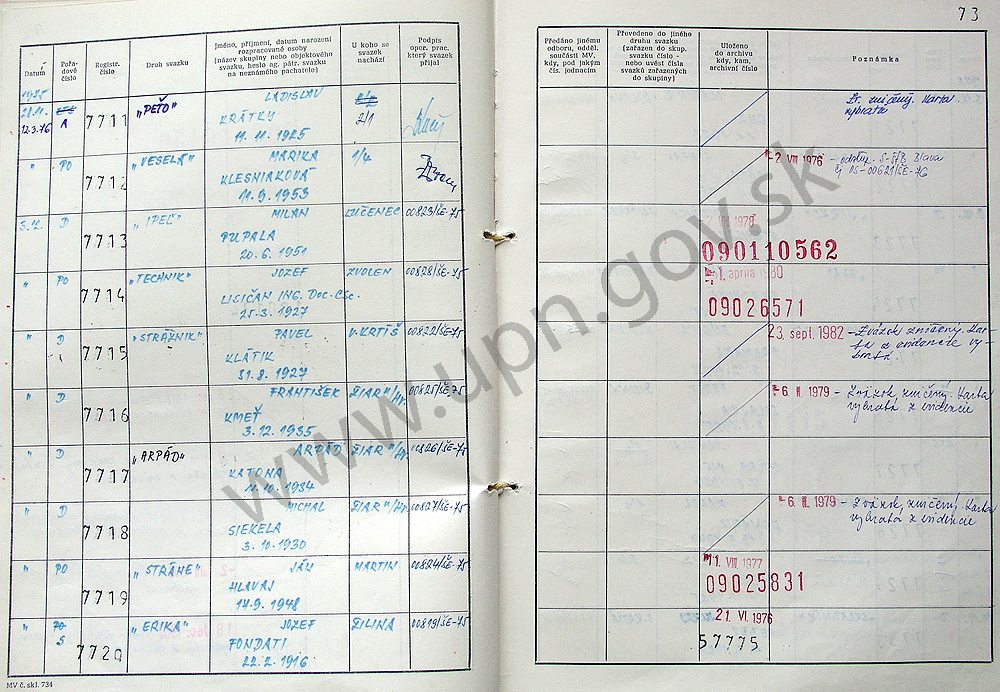 73
Datum
Pořa-
dové
číslo
Registr.
číslo
Druh svazku
Jméno, příjmení, datum narození
rozpracované osoby
(název skupiny nebo objektového
svazku, heslo ag. pátr. svazku
na neznámého pachatele)
U koho se
svazek
nachází
Podpis
oper. prac.
který svazek
přijal
Předáno jinému
odboru, odděl.
součásti MV,
kdy, pod jakým
čís. jednacím
Převedeno do jiného
druhu svazku
(zařazen do skup.
svazku číslo -
nebo uvést čísla
svazků zařazených
do skupiny)
Uloženo
do archivu
kdy, kam,
archivní číslo
Poznámka
1975
12.3.76 A 7711 „PEŤO" LADISLAV
KRÁTKY 2/1
11. 11. 1925
" PO 7712 „VESELÁ" MARIKA
KLESNIAKOVÁ
11. 9. 1953
-2. VIII 1976
3.12. D 7713 „IPEĽ" MILAN LUČENEC 00823/ŠE-75
PUPALA
20. 6. 1951
VIII 1978
090110562
" PO 7714 „TECHNIK" JOZEF ZVOLEN 00828/ŠE-75
LISIČAN ING. DOC. CSc.
25. 3. 1927
1. april 1980
09026571
" D 7715 „STRÁŽNIK" PAVEL V. KRTÍŠ 00822/ŠE-75
KLÁTIK
31. 8. 1927
23. sept. 1982 - Zväzok zničený. Kar-
ta z evidencie vy-
bratá.
" D 7716 FRANTIŠEK ŽIAR n/Hr. 00825/ŠE-75
KMEŤ
3. 12. 1935
-6. II. 1979 - Zväzok zničený. Karta
vybratá z evidencie
" D 7717 „ARPÁD" ARPÁD ŽIAR n/Hr. 00826/ŠE-75
KATONA
11. 10. 1934
" D 7718 MICHAL ŽIAR n/Hr. 00827/ŠE-75
SIEKELA
3. 10. 1930
-6. II. 1979 - Zväzok zničený. Karta
vybratá z evidencie
" PO 7719 „STRÁNE" JÁN MARTIN 00824/ŠE-75
HLAVAJ
17. 9. 1948
11. VIII. 1977
09025831
" S 7720 „ERIKA" JOZEF ŽILINA 00819/ŠE-75
FONDATI
22. 2. 1916
21. VI. 1976
57775
MV č. skl. 734
www.upn.gov.sk